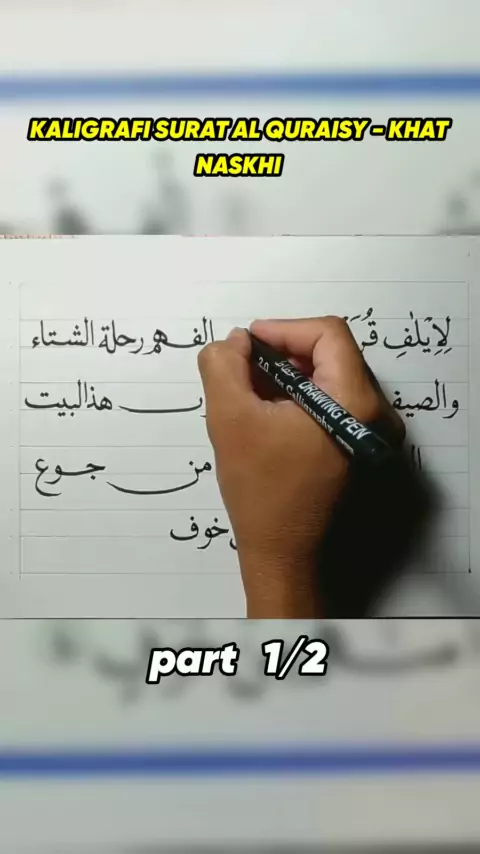 KALIGRAFI SURAT AL QURAISY - KHAT
NASKHI
لِاِيْلٰفِ الفهم رحلة الشتاء
والصيف هذالبيت
من جوع
خوف
DRAWING PEN
2.0 for Calligraphy
part 1/2